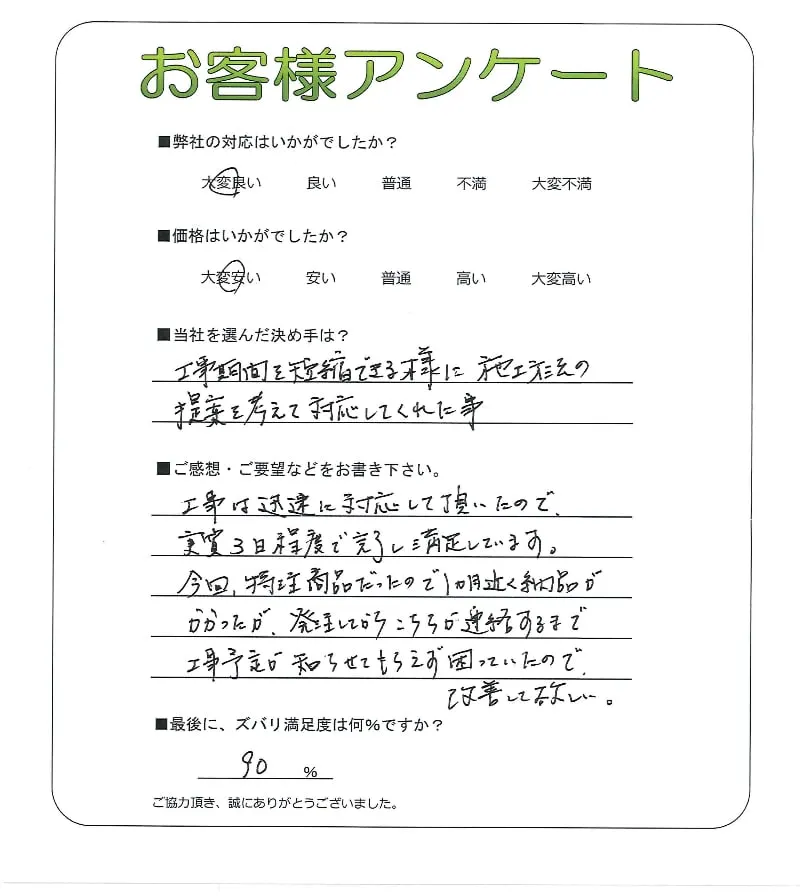 お客様アンケート
■弊社の対応はいかがでしたか？
大変良い 良い 普通 不満 大変不満
■価格はいかがでしたか？
大変安い 安い 普通 高い 大変高い
■当社を選んだ決め手は？
工事期間を短縮できる様に 施工形態の
提案を考えて対応してくれた事
■ご感想・ご要望などをお書き下さい。
工事は迅速に対応して頂いたので、
実質3日程度で完了し満足しています。
今回、特注商品だったので1カ月近く納品が
かかったが、発注してからこちらが連絡するまで
工事予定が知らせてもらえず困っていたので、
改善して欲しい。
■最後に、ズバリ満足度は何％ですか？
90 ％
ご協力頂き、誠にありがとうございました。